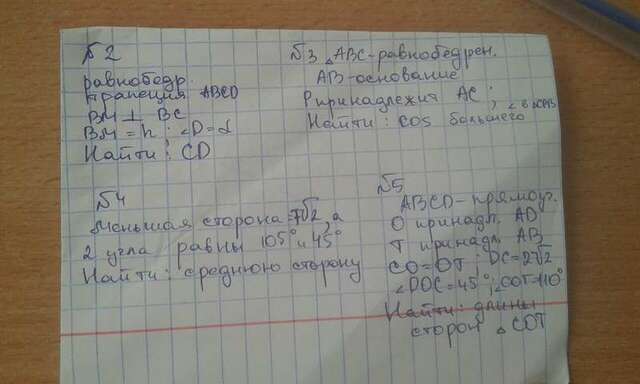 №2
равнобедр.
трапеция ABCD
BM ⊥ BC
BM = h ; ∠D = α
Найти: CD
№3 △ABC - равнобедрен.
AB - основание
P принадлежит AC ;
Найти: cos большего ∠ в △CPB
№4
Меньшая сторона = 7√2, а
2 угла равны 105° и 45°
Найти: среднюю сторону
№5
ABCD - прямоуг.
O принадл. AD
T принадл. AB
CO = OT ; DC = 2√2
∠DOC = 45° ; ∠COT = 110°
Найти: длины
сторон △ COT